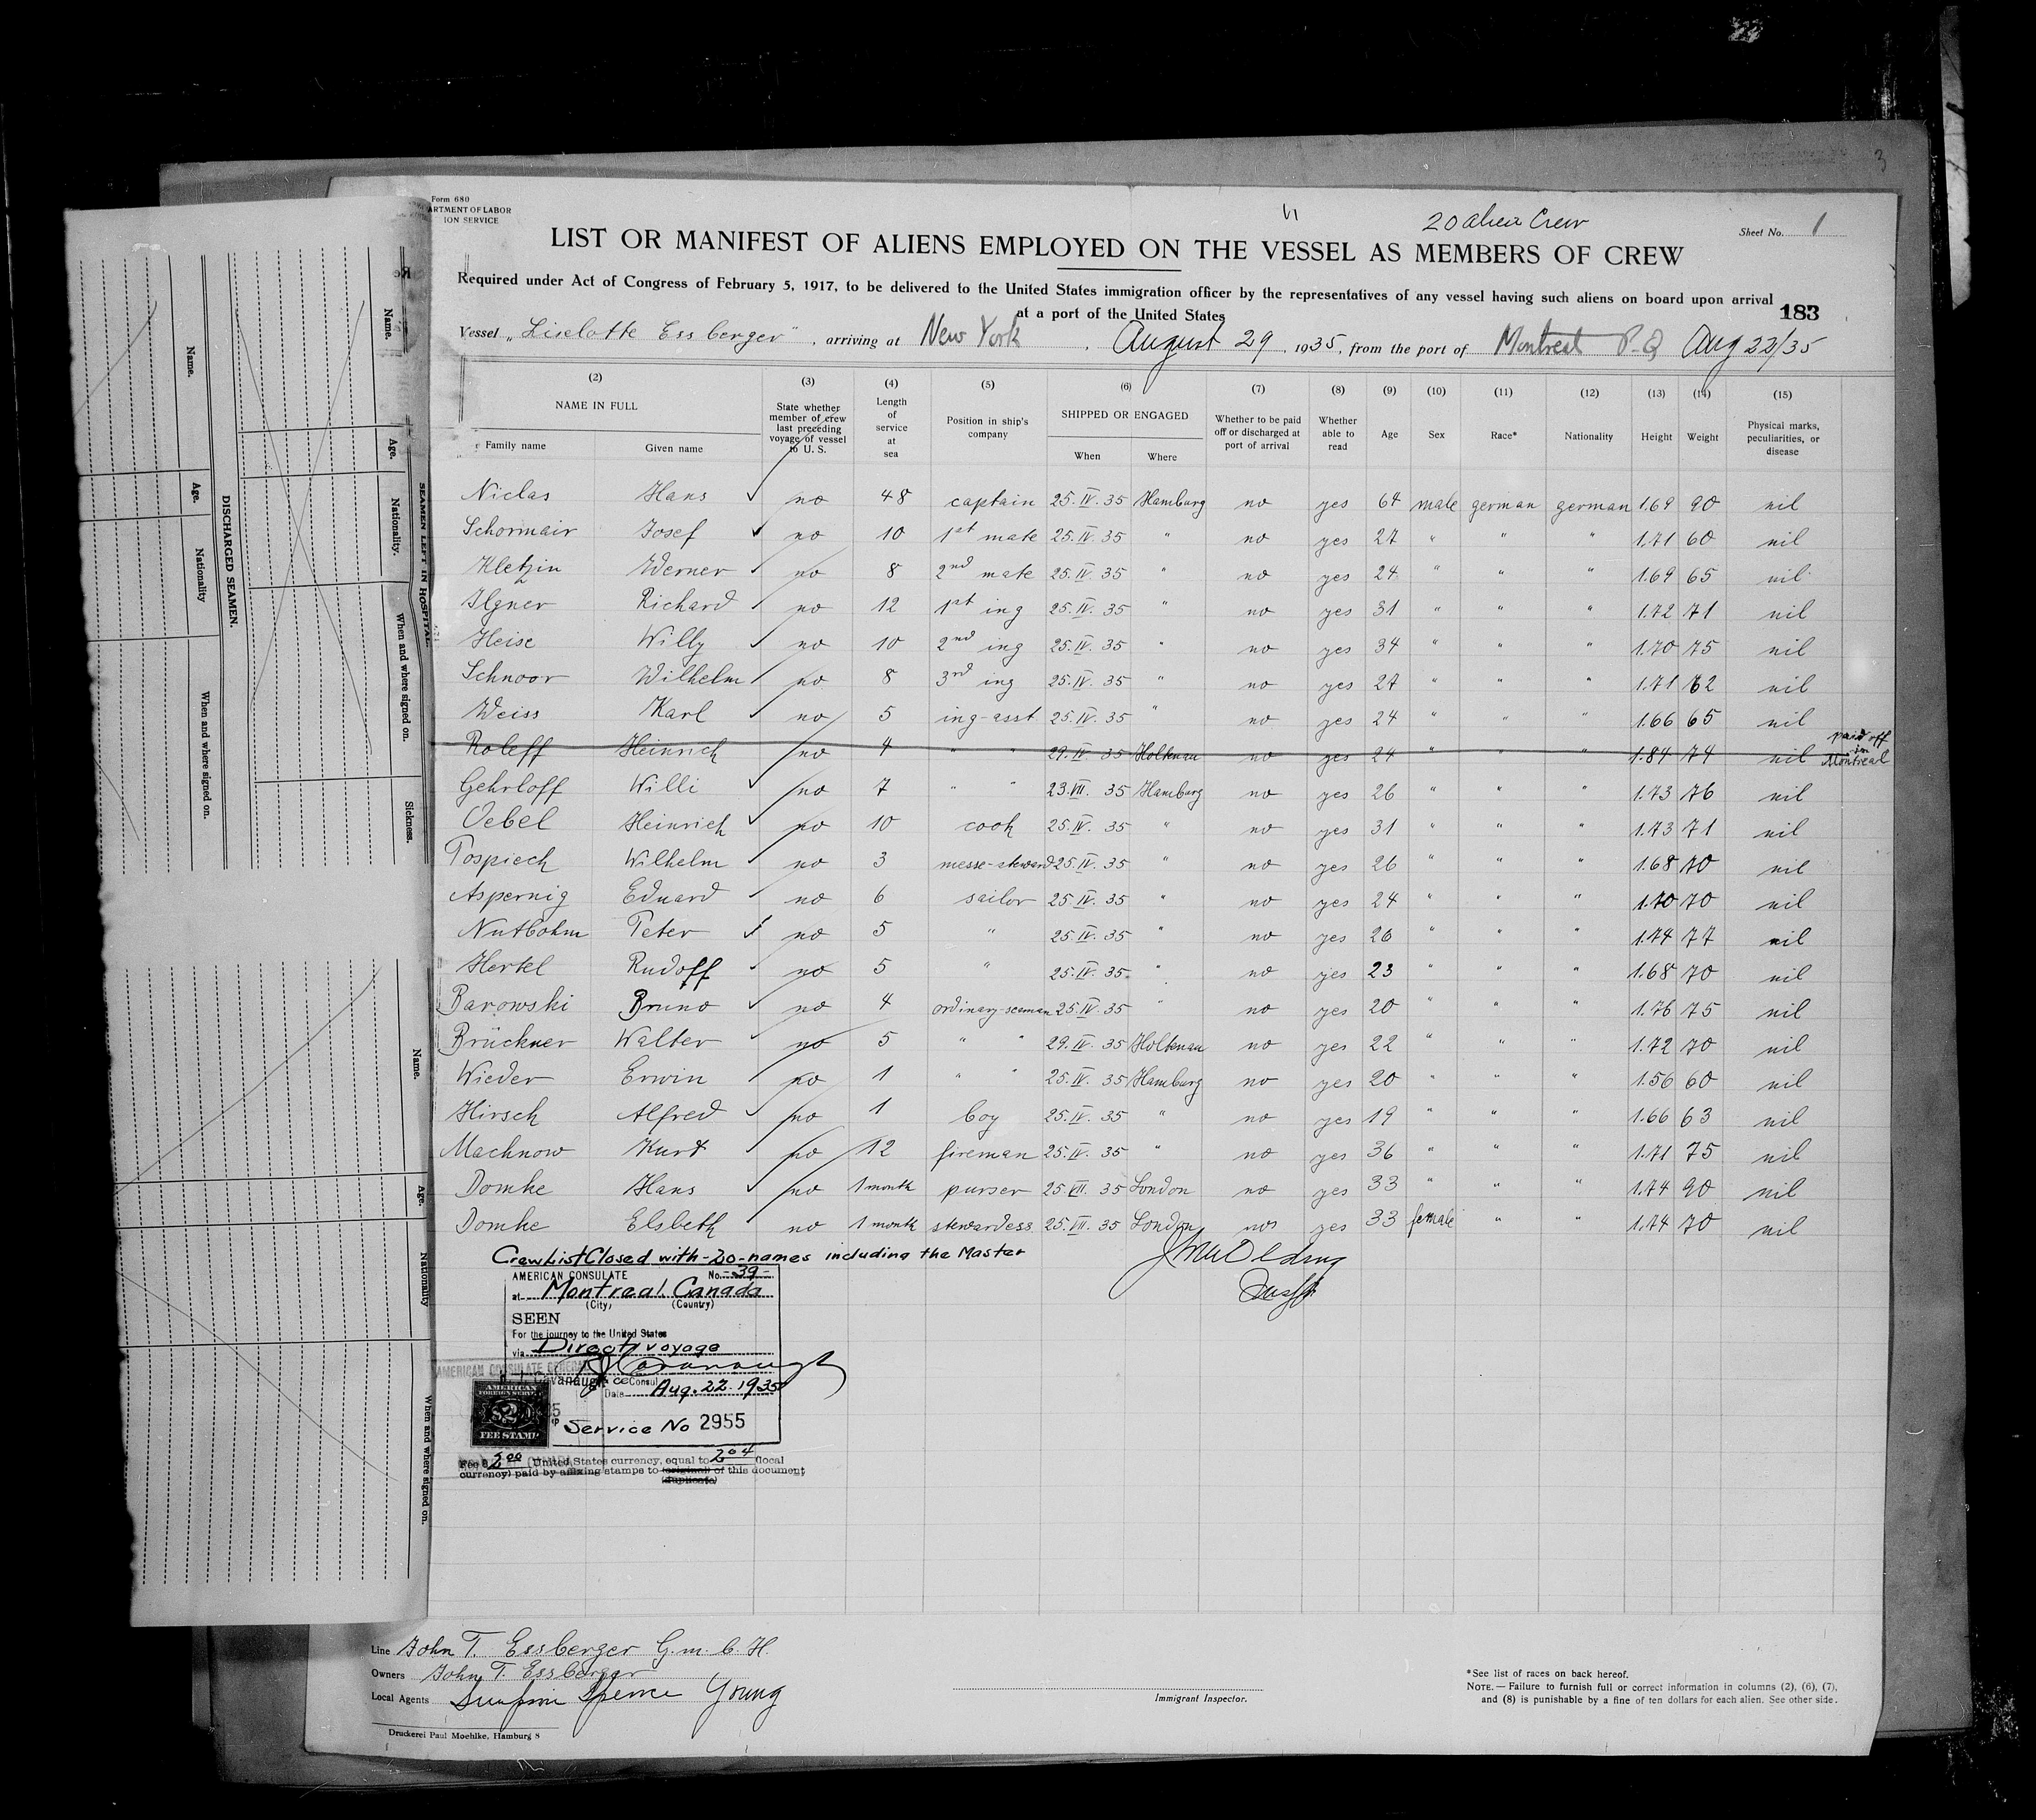 3
Form 680
ARTMENT OF LABOR
ION SERVICE
20 alien Crew
Sheet No. 1
LIST OR MANIFEST OF ALIENS EMPLOYED ON THE VESSEL AS MEMBERS OF CREW
Required under Act of Congress of February 5, 1917, to be delivered to the United States immigration officer by the representatives of any vessel having such aliens on board upon arrival
at a port of the United States
183
Vessel „Liselotte Essberger", arriving at New York, August 29, 1935, from the port of Montreal P-Q Aug 22/35
(2) (3) (4) (5) (6) (7) (8) (9) (10) (11) (12) (13) (14) (15)
NAME IN FULL Family name Given name
State whether member of crew last preceding voyage of vessel to U. S.
Length of service at sea
Position in ship's company
SHIPPED OR ENGAGED When Where
Whether to be paid off or discharged at port of arrival
Whether able to read
Age
Sex
Race*
Nationality
Height
Weight
Physical marks, peculiarities, or disease
Niclas Hans no 48 captain 25.IV.35 Hamburg no yes 64 male german german 1.69 90 nil
Schormair Josef no 10 1st mate 25.IV.35 " no yes 27 " " " 1.71 60 nil
Kletzin Werner no 8 2nd mate 25.IV.35 " no yes 24 " " " 1.69 65 nil
Ilgner Richard no 12 1st ing 25.IV.35 " no yes 31 " " " 1.72 71 nil
Heise Willy no 10 2nd ing 25.IV.35 " no yes 34 " " " 1.70 75 nil
Schnoor Wilhelm no 8 3rd ing 25.IV.35 " no yes 27 " " " 1.71 62 nil
Weiss Karl no 5 ing-asst 25.IV.35 " no yes 24 " " " 1.66 65 nil
Roleff Heinrich no 4 " " 29.IV.35 Holtenau no yes 24 " " " 1.84 74 nil paid off in Montreal
Gehrloff Willi no 7 " " 23.VII.35 Hamburg no yes 26 " " " 1.73 76 nil
Oebel Heinrich no 10 cook 25.IV.35 " no yes 31 " " " 1.73 71 nil
Pospiech Wilhelm no 3 messe-steward 25.IV.35 " no yes 26 " " " 1.68 70 nil
Aspernig Eduard no 6 sailor 25.IV.35 " no yes 24 " " " 1.70 70 nil
Nutbohm Peter no 5 " 25.IV.35 " no yes 26 " " " 1.74 77 nil
Hertel Rudoff no 5 " 25.IV.35 " no yes 23 " " " 1.68 70 nil
Barowski Bruno no 4 ordinary-seaman 25.IV.35 " no yes 20 " " " 1.76 75 nil
Brückner Walter no 5 " " 29.IV.35 Holtenau no yes 22 " " " 1.72 70 nil
Wieder Erwin no 1 " " 25.IV.35 Hamburg no yes 20 " " " 1.56 60 nil
Hirsch Alfred no 1 boy 25.IV.35 " no yes 19 " " " 1.66 63 nil
Machnow Kurt no 12 fireman 25.IV.35 " no yes 36 " " " 1.71 75 nil
Domke Hans no 1 month purser 25.VII.35 London no yes 33 " " " 1.74 90 nil
Domke Elsbeth no 1 month stewardess 25.VII.35 London no yes 33 female " " 1.74 70 nil
Crew List Closed with -20- names including the Master
AMERICAN CONSULATE No. 39
at Montreal Canada
(City) (Country)
SEEN
For the journey to the United States
via Direct voyage
AMERICAN CONSULATE GENERAL
Cavanaugh Consul
Date Aug. 22. 1935
AMERICAN FOREIGN SERVICE
FEE STAMP
Service No 2955
Fee $ 2.00 (United States currency, equal to 2.04 (local
currency) paid by affixing stamps to (original) of this document
(duplicate)
Line John T. Essberger G.m.b.H.
Owners John T. Essberger
Local Agents Spence Young
Druckerei Paul Moehlke, Hamburg 8
Immigrant Inspector.
*See list of races on back hereof.
NOTE.—Failure to furnish full or correct information in columns (2), (6), (7),
and (8) is punishable by a fine of ten dollars for each alien. See other side.
SEAMEN LEFT IN HOSPITAL.
Name. Age. Nationality. When and where signed on. Sickness.
DISCHARGED SEAMEN.
Name. Age. Nationality When and where signed on.
Name. Age. Nationality When and where signed on.